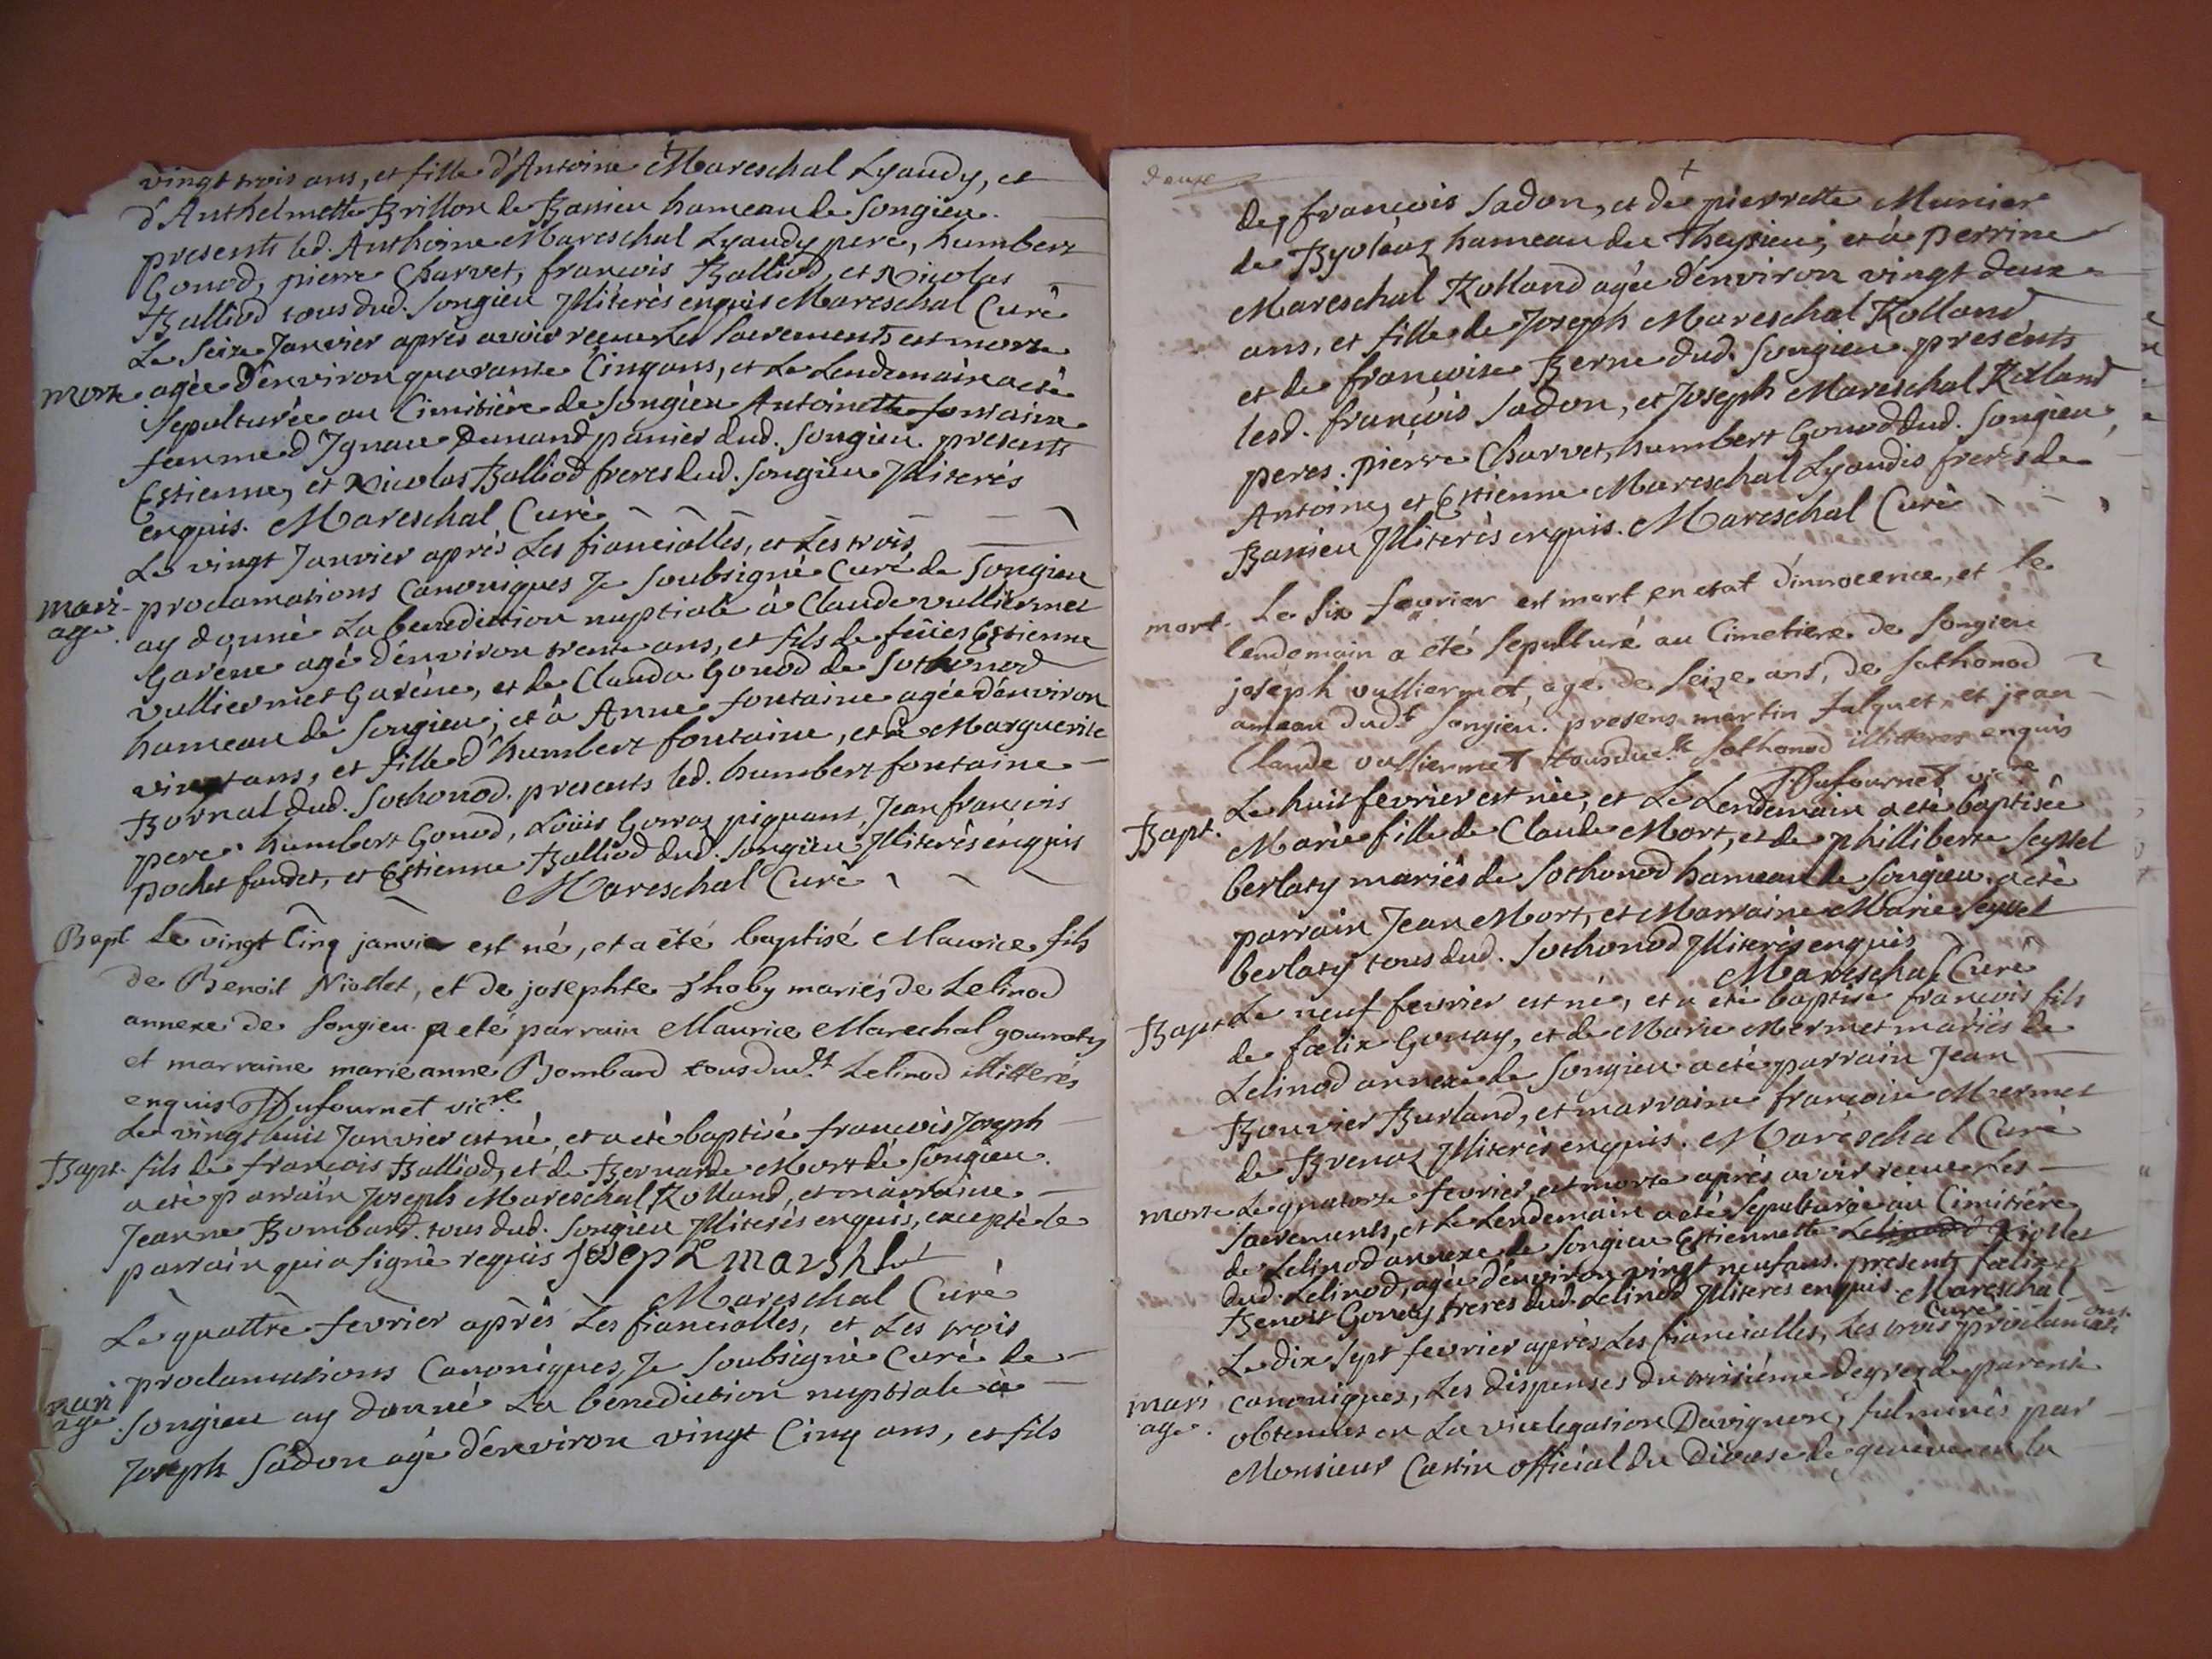 vingt trois ans, et fille d'Antoine Mareschal Lyaudy, et
d'Anthelmette Brillon de Bassieu hameau de Songieu.
presents led. Anthoine Mareschal Lyaudy pere, humbert
Gonod, pierre Charvet, francois Balliod, et Nicolas
Balliod tous dud. Songieu Jlliterès enquis Mareschal Curè
Le Seize Janvier après avoir receu les sacrements est morte
morte agèe d'environ quarante Cinq ans, et Le Lendemain a etè
Sepulturèe au Cimitière de Songieu Antoinette fontaine
femme d'Ignace Dunand panier dud. Songieu. presents
Estienne, et Nicolas Balliod freres dud. Songieu Jlliterès
enquis. Mareschal Curè
Le vingt Janvier après Les fiancialles, et Les trois
mari- proclamations Canoniques Je Soubsignè Curè de Songieu
age. ay donnè La benediction nuptiale à Claude vulliermet
Garène agè d'environ trente ans, et fils de feües Estienne
vulliermet Garène, et de Clauda Gonod de Sothonod
hameau de Songieu; et à Anne fontaine agèe d'environ
vingt ans, et fille d'humbert fontaine, et de Marguerite
Bornal dud. Sothonod. presents led. humbert fontaine
pere. humbert Gonod, Loüis Gorraz piquant, Jean francois
pochet faudet, et Estienne Balliod dud. Songieu Jlliterès enquis
Mareschal Curè
Bapt Le vingt Cinq janvier est né, et a été baptisé Maurice fils
de Benoit Niollet, et de josephte thoby mariés de Lelinod
annexe de Songieu. a eté parrain Maurice Marechal gourraty
et marraine marie anne Bombard tous dud.t Lelinod illiterés
enquis Dufournet vic.re
Le vingt huit Janvier est nè, et a etè baptisè francois Joseph
Bapt. fils de francois Balliod, et de Bernarde Mort de Songieu.
a etè parrain Joseph Mareschal Rolland, et marraine
Jeanne Bombard. tous dud. Songieu Jlliterès enquis, exceptè le
parrain qui a signè requis Joseph marshl
Mareschal Curè
Le quattre fevrier après Les fiancialles, et Les trois
proclamations Canoniques, Je Soubsignè Curè de
mari age. Songieu ay donnè La benediction nuptiale à
Joseph Sadon agè d'environ vingt Cinq ans, et fils
deuxe
de francois Sadon, et de pierrette Munier
de Byoléaz hameau du Theysieu; et à perrine
Mareschal Rolland agèe d'environ vingt deux
ans, et fille de Joseph Mareschal Rolland
et de francoise Berne dud. Songieu. presents
lesd. francois Sadon, et Joseph Mareschal Rolland
peres. pierre Charvet, humbert Gonod dud. Songieu,
Antoine, et Estienne Mareschal Lyaudis freres de
Bassieu Jlliterès enquis. Mareschal Curè
mort. Le Six fevrier est mort en etat d'innocence, et le
lendemain a été Sepulturé au Cimetiere de Songieu
joseph vulliermet, agé de Seize ans, de Sothonod
ameau dud.t Songieu. presens martin falquet, et jean
Claude vulliermet tous dud.t Sothonod illiteres enquis
Dufournet vic.re
Bapt. Le huit fevrier est nèe, et Le Lendemain a etè baptisèe
Marie fille de Claude Mort, et de philliberte Seyssel
berlaty mariès de Sothonod hameau de Songieu. a etè
parrain Jean Mort, et Marraine Marie Seyssel
berlaty tous dud. Sothonod Jlliterès enquis
Mareschal Curè
Bapt Le neuf fevrier est nè, et a etè baptisè francois fils
de foelix Gonay, et de Marie Mermet mariès de
Lelinod annexe de Songieu. a etè parrain Jean
Bouvier Burland, et marraine francoise Mermet
de Brenaz Jlliterès enquis. Mareschal Curè
morte Le quatorze fevrier est morte après avoir receu Les
Sacrements, et Le Lendemain a etè Sepulturèe au Cimitière
de Lelinod annexe de Songieu Estiennette Lelinod Niollet
dud. Lelinod, agèe d'environ vingt neuf ans. presents foelix
Benoit Gonay freres dud. Lelinod Jlliteres enquis. Mareschal
Curè
Le dix Sept fevrier après Les fiancialles, Les trois proclamati ons
mari canoniques, Les dispenses du troisième degrez de parentè
age. obtenues en La vicelegation Davignon, fulminès par
Monsieur Castin official du Diocese de genève en la